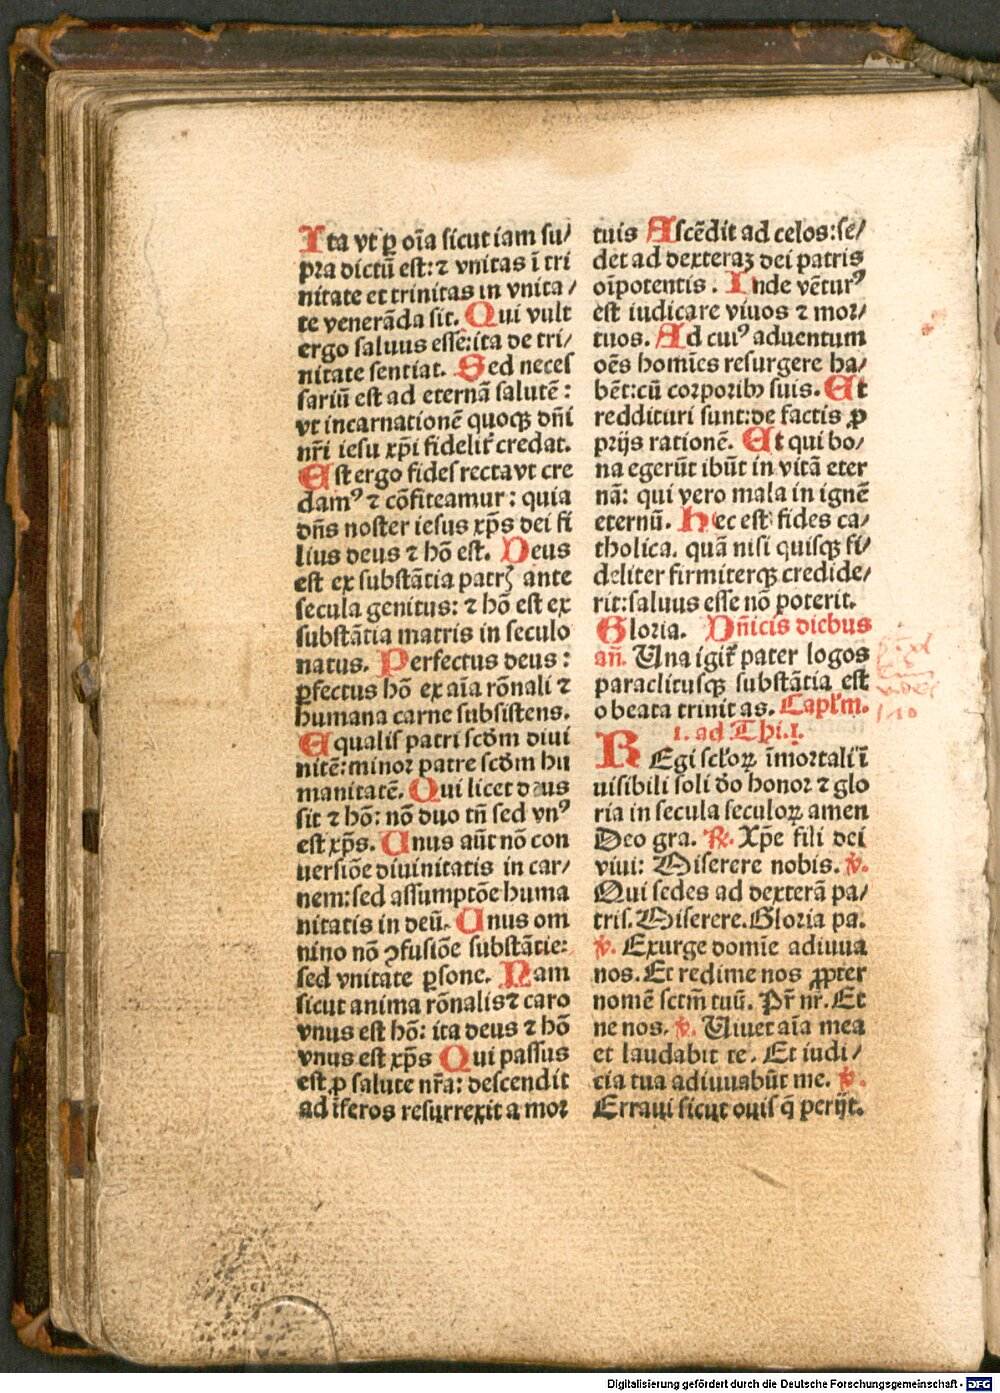 Ita vt ꝑ oīa sicut iam su/
pra dictū est: ⁊ vnitas ī tri
nitate et trinitas in vnita/
te venerāda sit. Qui vult
ergo saluus esse: ita de tri/
nitate sentiat. Sed neces
sariū est ad eternā salutē:
vt incarnationē quoqꝫ dn̄i
nr̄i iesu xp̄i fidelit᷑ credat.
Est ergo fides recta vt cre
dam⁹ ⁊ cōfiteamur: quia
dn̄s noster iesus xp̄s dei fi
lius deus ⁊ hō est. Deus
est ex substātia patrꝭ ante
secula genitus: ⁊ hō est ex
substātia matris in seculo
natus. Perfectus deus:
ꝑfectus hō ex aīa rōnali ⁊
humana carne subsistens.
Equalis patri scd̄m diui
nitē: minor patre scd̄m hu
manitatē. Qui licet deus
sit ⁊ hō: nō duo tn̄ sed vn⁹
est xp̄s. Unus aūt nō con
uersiōe diuinitatis in car/
nem: sed assumptōe huma
nitatis in deū. Unus om
nino nō ꝯfusiōe substātie:
sed vnitate ꝑsone. Nam
sicut anima rōnalis ⁊ caro
vnus est hō: ita deus ⁊ hō
vnus est xp̄s Qui passus
est ꝓ salute nr̄a: descendit
ad īferos resurrexit a mor
tuis Ascēdit ad celos: se/
det ad dexteraꝫ dei patris
oīpotentis. Inde vētur⁹
est iudicare viuos ⁊ mor/
tuos. Ad cui⁹ aduentum
oēs homīes resurgere ha/
bēt: cū corporibꝫ suis. Et
reddituri sunt: de factis ꝓ
prijs rationē. Et qui bo/
na egerūt ibūt in vitā eter
nā: qui vero mala in ignē
eternū. Hec est fides ca/
tholica. quā nisi quisqꝫ fi/
deliter firmiterqꝫ credide/
rit: saluus esse nō poterit.
Gloria. Dn̄icis diebus
an̄. Una igit᷑ pater logos
paraclitusqꝫ substātia est
o beata trinitas. Capl̄m.
1. ad Thi. 1.
REgi scl̄oꝝ īmortali ī
uisibili soli dō honor ⁊ glo
ria in secula seculoꝝ amen
Deo gra. ℟. Xp̄e fili dei
viui: Miserere nobis. ℣.
Qui sedes ad dexterā pa/
tris. Miserere. Gloria pa.
℣. Exurge domīe adiuua
nos. Et redime nos ꝓpter
nomē sctm̄ tuū. Pr̄ nr̄. Et
ne nos. ℣. Uiuet aīa mea
et laudabit te. Et iudi/
cia tua adiuuabūt me. ℣.
Erraui sicut ouis q̄ perijt.
Digitalisierung gefördert durch die Deutsche Forschungsgemeinschaft - DFG